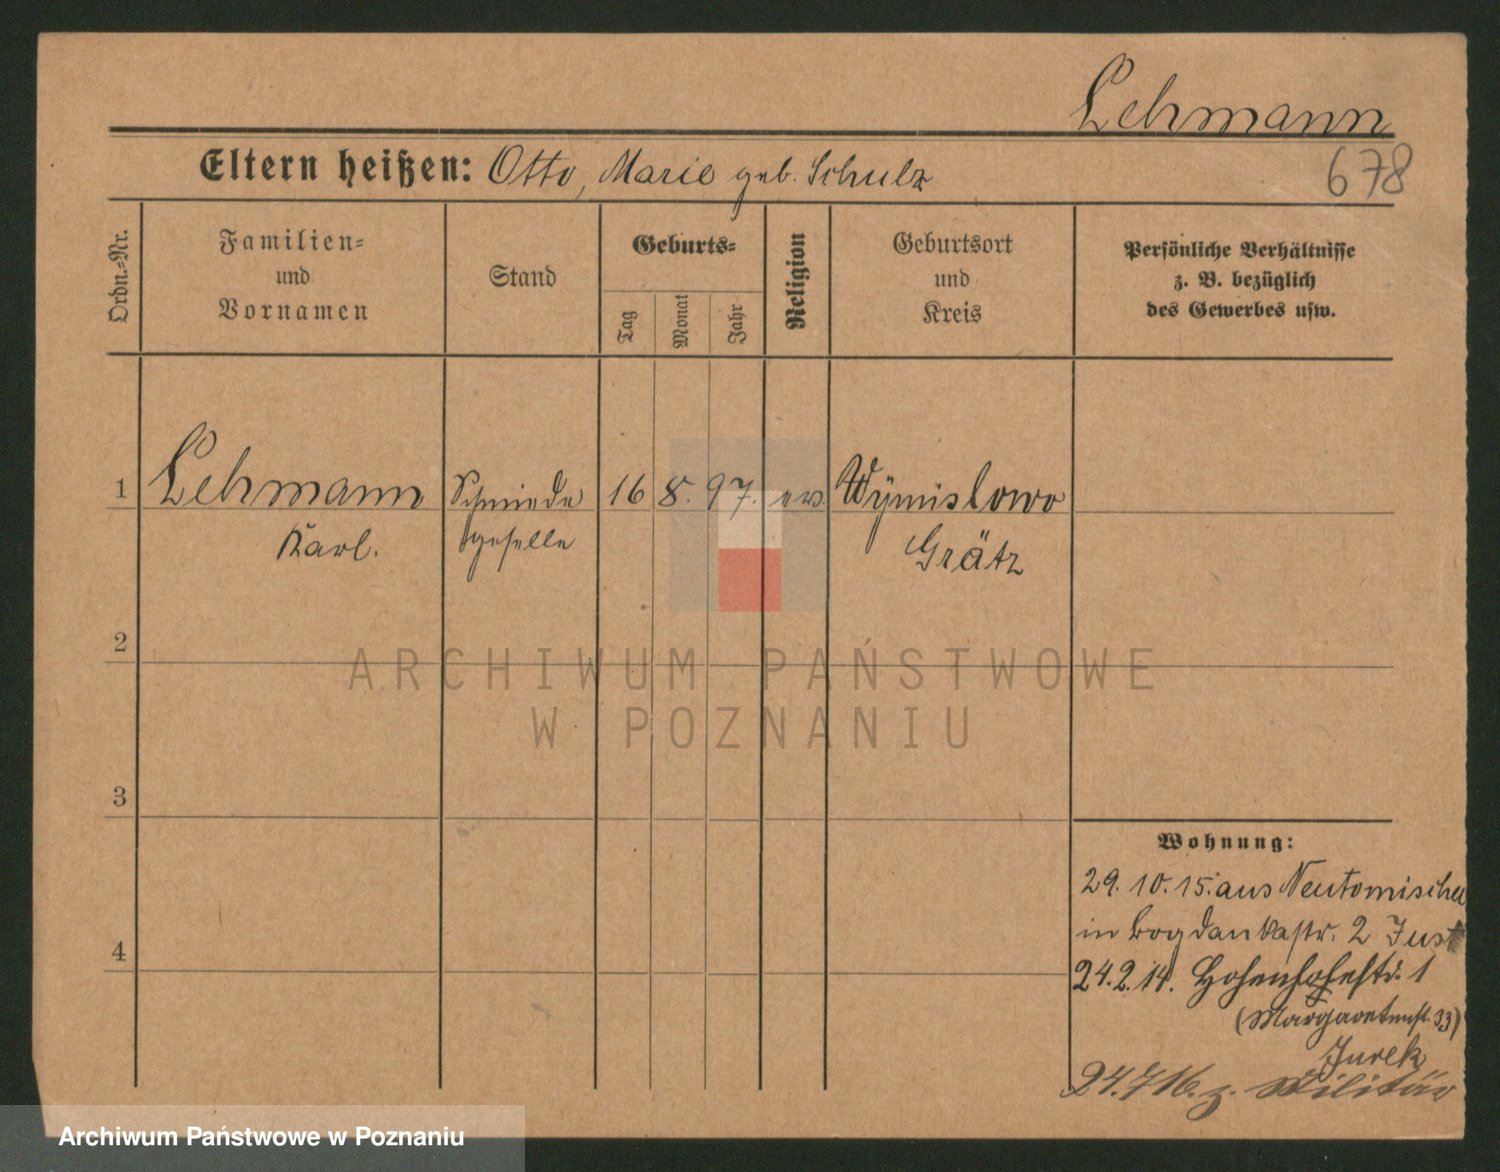 Lehmann
Eltern heißen: Otto, Marie geb. Schulz
678
Ordn.=Nr.
Familien=
und
Vornamen
Stand
Geburts=
Tag
Monat
Jahr
Religion
Geburtsort
und
Kreis
Persönliche Verhältnisse
z. B. bezüglich
des Gewerbes usw.
1 Lehmann Schmiede 16 8. 97. ev. Wymislowo
Karl. geselle Grätz
2
ARCHIWUM PAŃSTWOWE
W POZNANIU
3
Wohnung:
29. 10. 15. aus Neutomischel
in Bogdankastr. 2 Just
4
24. 2. Hohenlohestr. 1
(Margaretenst. 33)
Jurek
24. 7 16. z. Militär
Archiwum Państwowe w Poznaniu